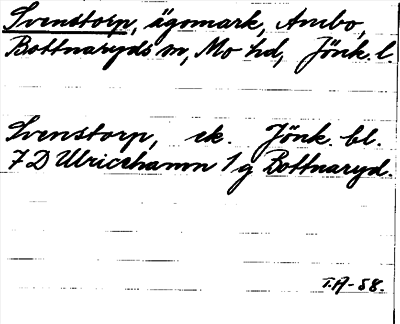 Svenstorp, ägomark, Ambo,
Bottnaryds sn, Mo hd, Jönk. l.
Svenstorp, ek. Jönk. bl.
7 D Ulricehamn 1 g Bottnaryd.
T.A-58.